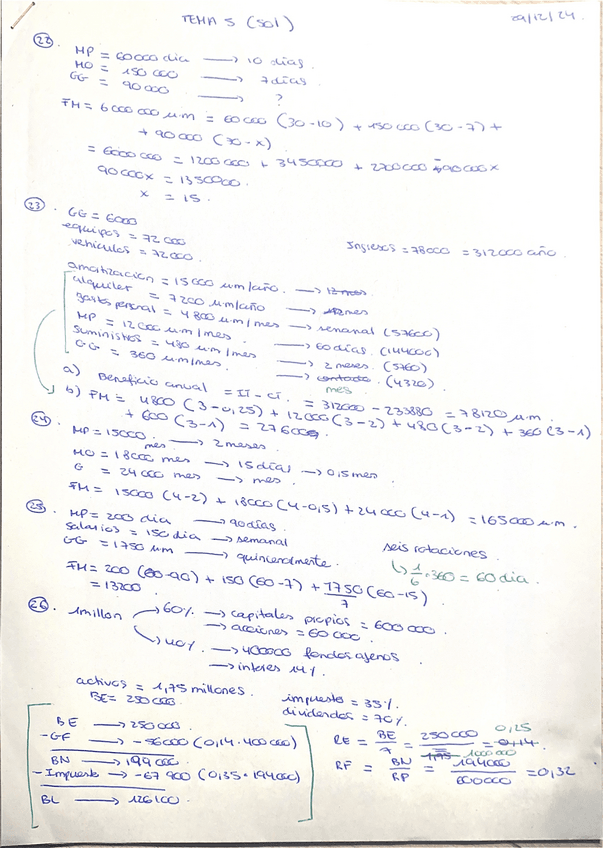 TEMA 5 (sol)
29/12/24.
22. MP = 60000 dia → 10 días.
MO = 150 000 → 7 días.
GG = 90 000 → ?
FM = 6 000 000 u.m = 60 000 (30-10) + 150 000 (30-7) +
+ 90 000 (30-x)
= 6000 000 = 1200 000 + 3450000 + 2700 000 - 90 000 x
90 000x = 1350000.
x = 15.
23. GG = 6000
equipos = 72 000
vehiculos = 72000.
Ingresos = 78000 = 312000 año.
amortizacion = 15 000 u.m/año. → 12 mes
alquiler = 7 200 u.m/año → mes
gastos personal = 4 800 u.m/mes → semanal (57600)
MP = 12 000 u.m/mes. → 60 días. (144000)
suministros = 480 u.m/mes → 2 meses. (5760)
GG = 360 u.m/mes. → contado (4320).
mes
a) Beneficio anual = IT - CT. = 312000 - 233880 = 78120 u.m.
b) FM = 4800 (3-0,25) + 12000 (3-2) + 480 (3-2) + 360 (3-1)
+ 600 (3-1) = 27600.
24. MP = 15000 mes → 2 meses.
MO = 18000 mes → 15 días → 0,5 mes
G = 24 000 mes → mes.
FM = 15000 (4-2) + 18000 (4-0,5) + 24 000 (4-1) = 165 000 u.m.
25. MP = 200 dia → 90 días.
salarios = 150 dia → semanal
GG = 1750 um → quincenalmente.
seis rotaciones.
↳ 1/6 · 360 = 60 dia.
FM = 200 (60-90) + 150 (60-7) + 1750/7 (60-15)
= 13200.
26. 1 millon → 60% → capitales propios = 600 000
→ acciones = 60 000.
→ 40% → 400000 fondos ajenos
→ interes 14%.
activos = 1,75 millones.
BE = 250 000.
impuesto = 35%.
dividendos = 70%.
BE → 250 000.
- GF → - 56000 (0,14 · 400 000)
BN → 194 000.
- Impuesto → - 67 900 (0,35 · 194000)
BL → 126100.
RE = BE/A = 250 000/1,75 1000 000 = 0,14. 0,25
RF = BN/RP = 194000/600000 = 0,32